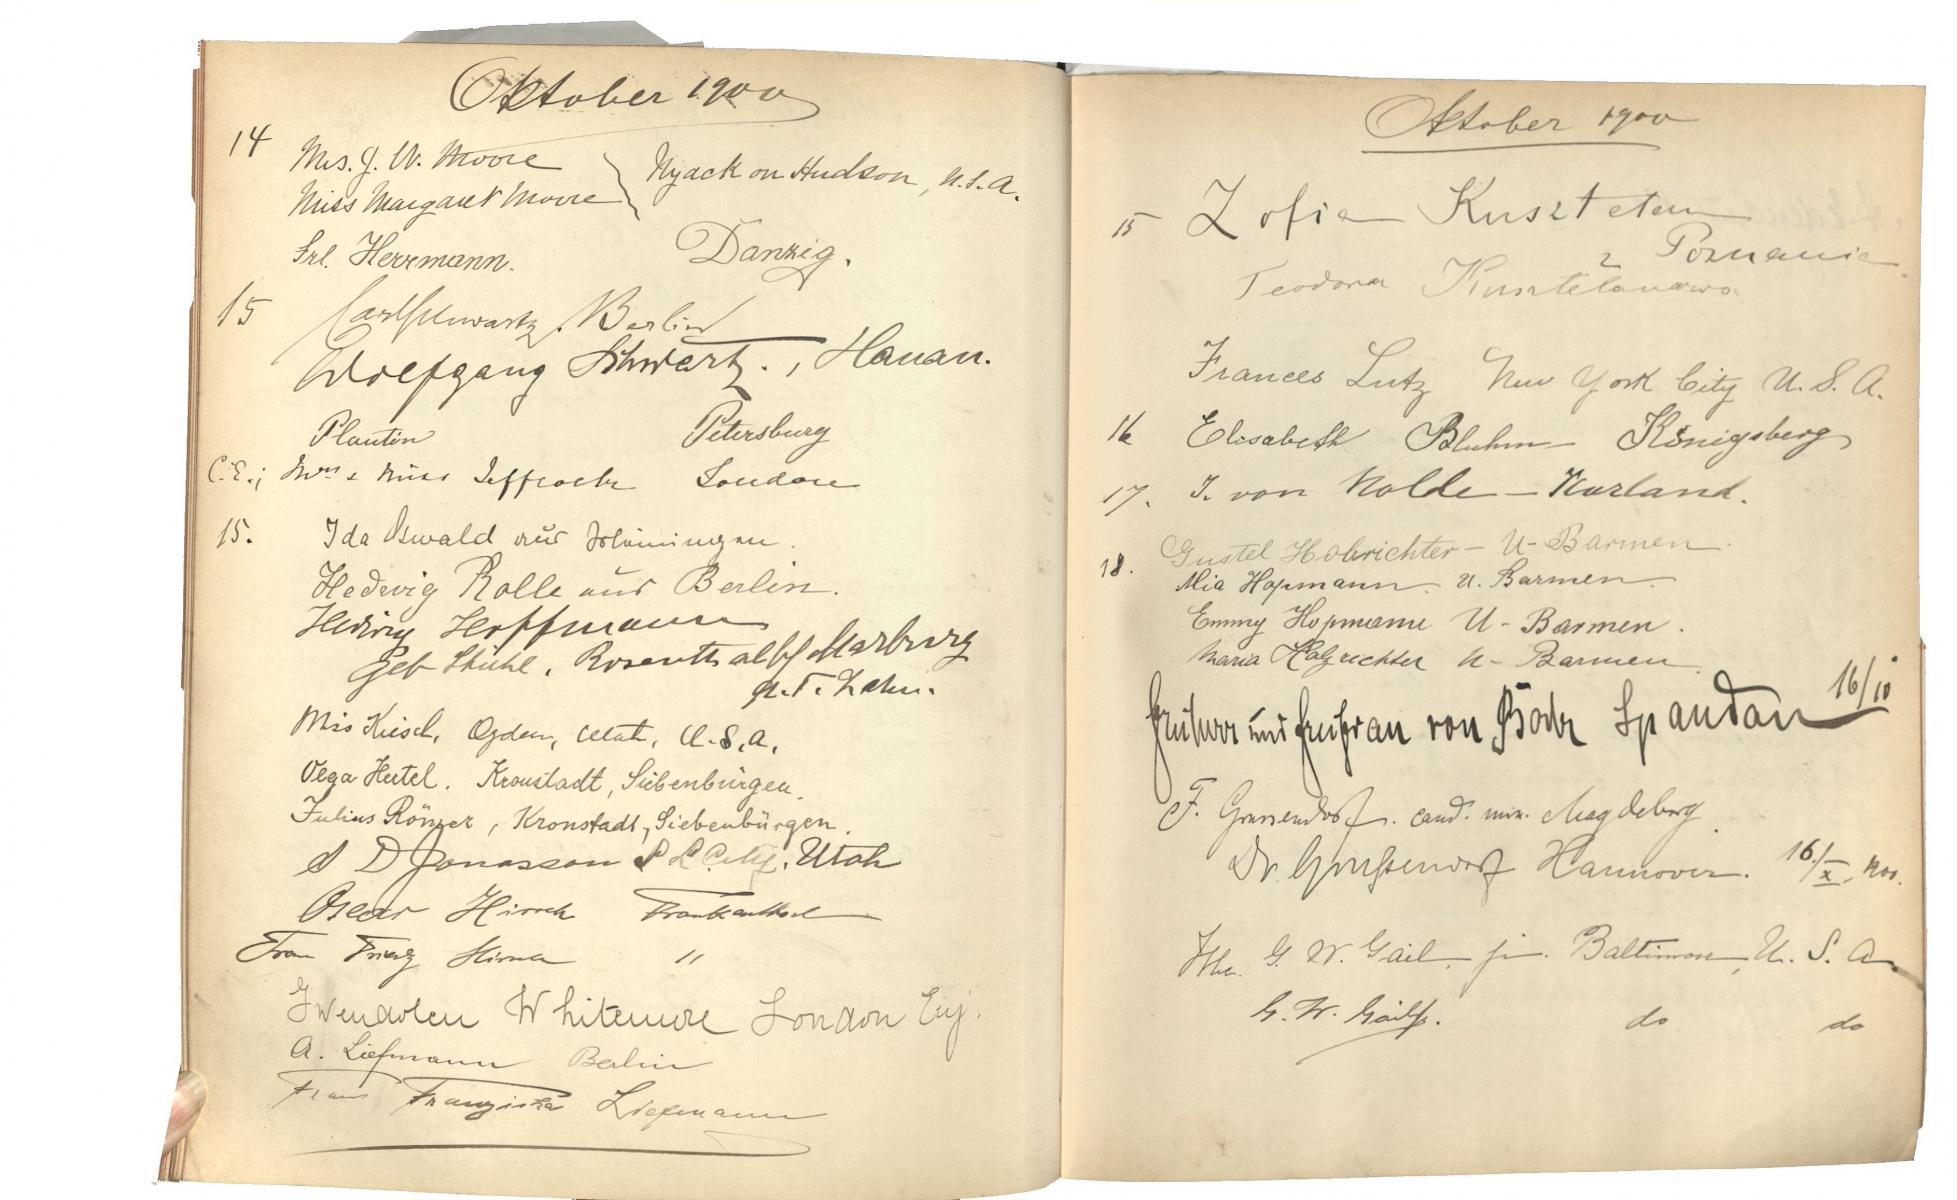 Oktober 1900
14 Mrs. J. W. Moore
Miss Margaret Moore
Nyack on Hudson, U.S.A.
Frl. Herrmann. Danzig.
15 Carl Schwartz, Berlin
Wolfgang Schwartz., Hanau.
Plantin Petersburg
C.E.; Mrs & Miss London
15. Ida Oswald aus
Hedwig Rolle aus Berlin.
Hedwig Hoffmann
geb Stühl, Rosenthal bf Marburg
a. L. Lahn.
Miss Kiesel, Ogden, Utah, U.S.A.
Olga Hertel. Kronstadt, Siebenbürgen.
Julius Römer, Kronstadt, Siebenbürgen.
S D Jonasson S L City. Utah
Oscar Hirsch Frankenthal
Frau Hirsch "
Gwendolen Whitemore London Eng.
A. Liefmann Berlin
Frau Franziska Liefmann
Oktober 1900
15 Zofia Kusztelan
z Poznania.
Teodora Kusztelanowa
Frances Lutz New York City U.S.A.
16 Elisabeth Bluhm Königsberg
17. J. von Nolde – Kurland.
18. Gustel Holzrichter – U-Barmen.
Mia Hopmann U. Barmen.
Emmy Hopmann U-Barmen.
Maria Holzrichter U-Barmen.
Freiherr und Freifrau von Spandau 16/10
F. Grussendorf. cand. min. Magdeburg
Dr. Grussendorf Hannover. 16./X.
G. W. Gail, jr. Baltimore, U. S. A.
G. W. Gail jr. do do